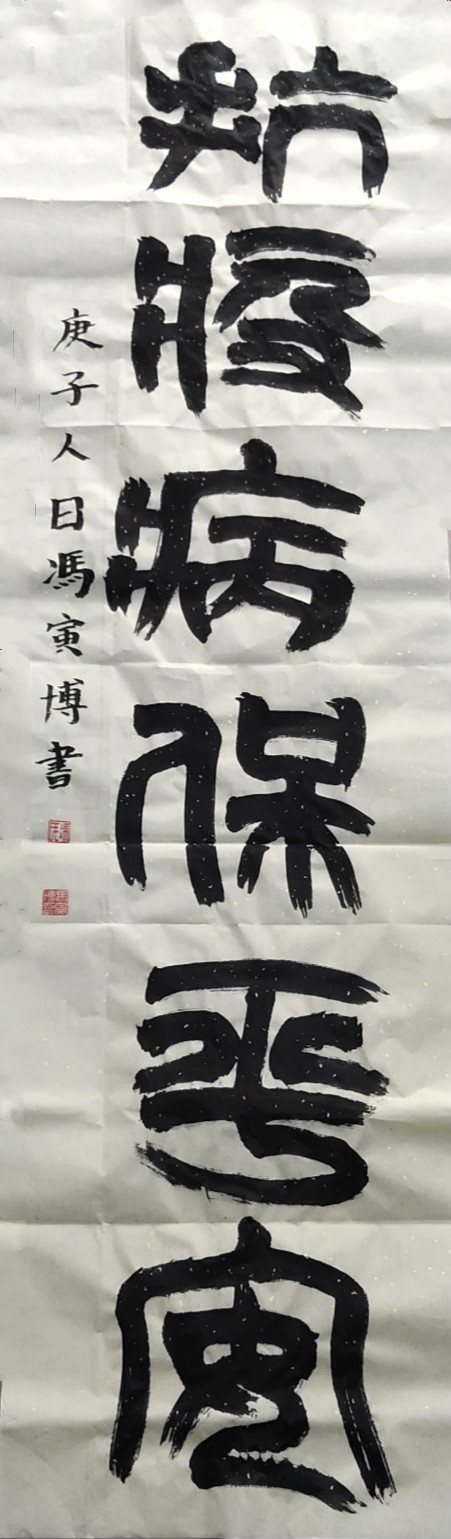 抗疫病保平安
庚子人日馮寅博書